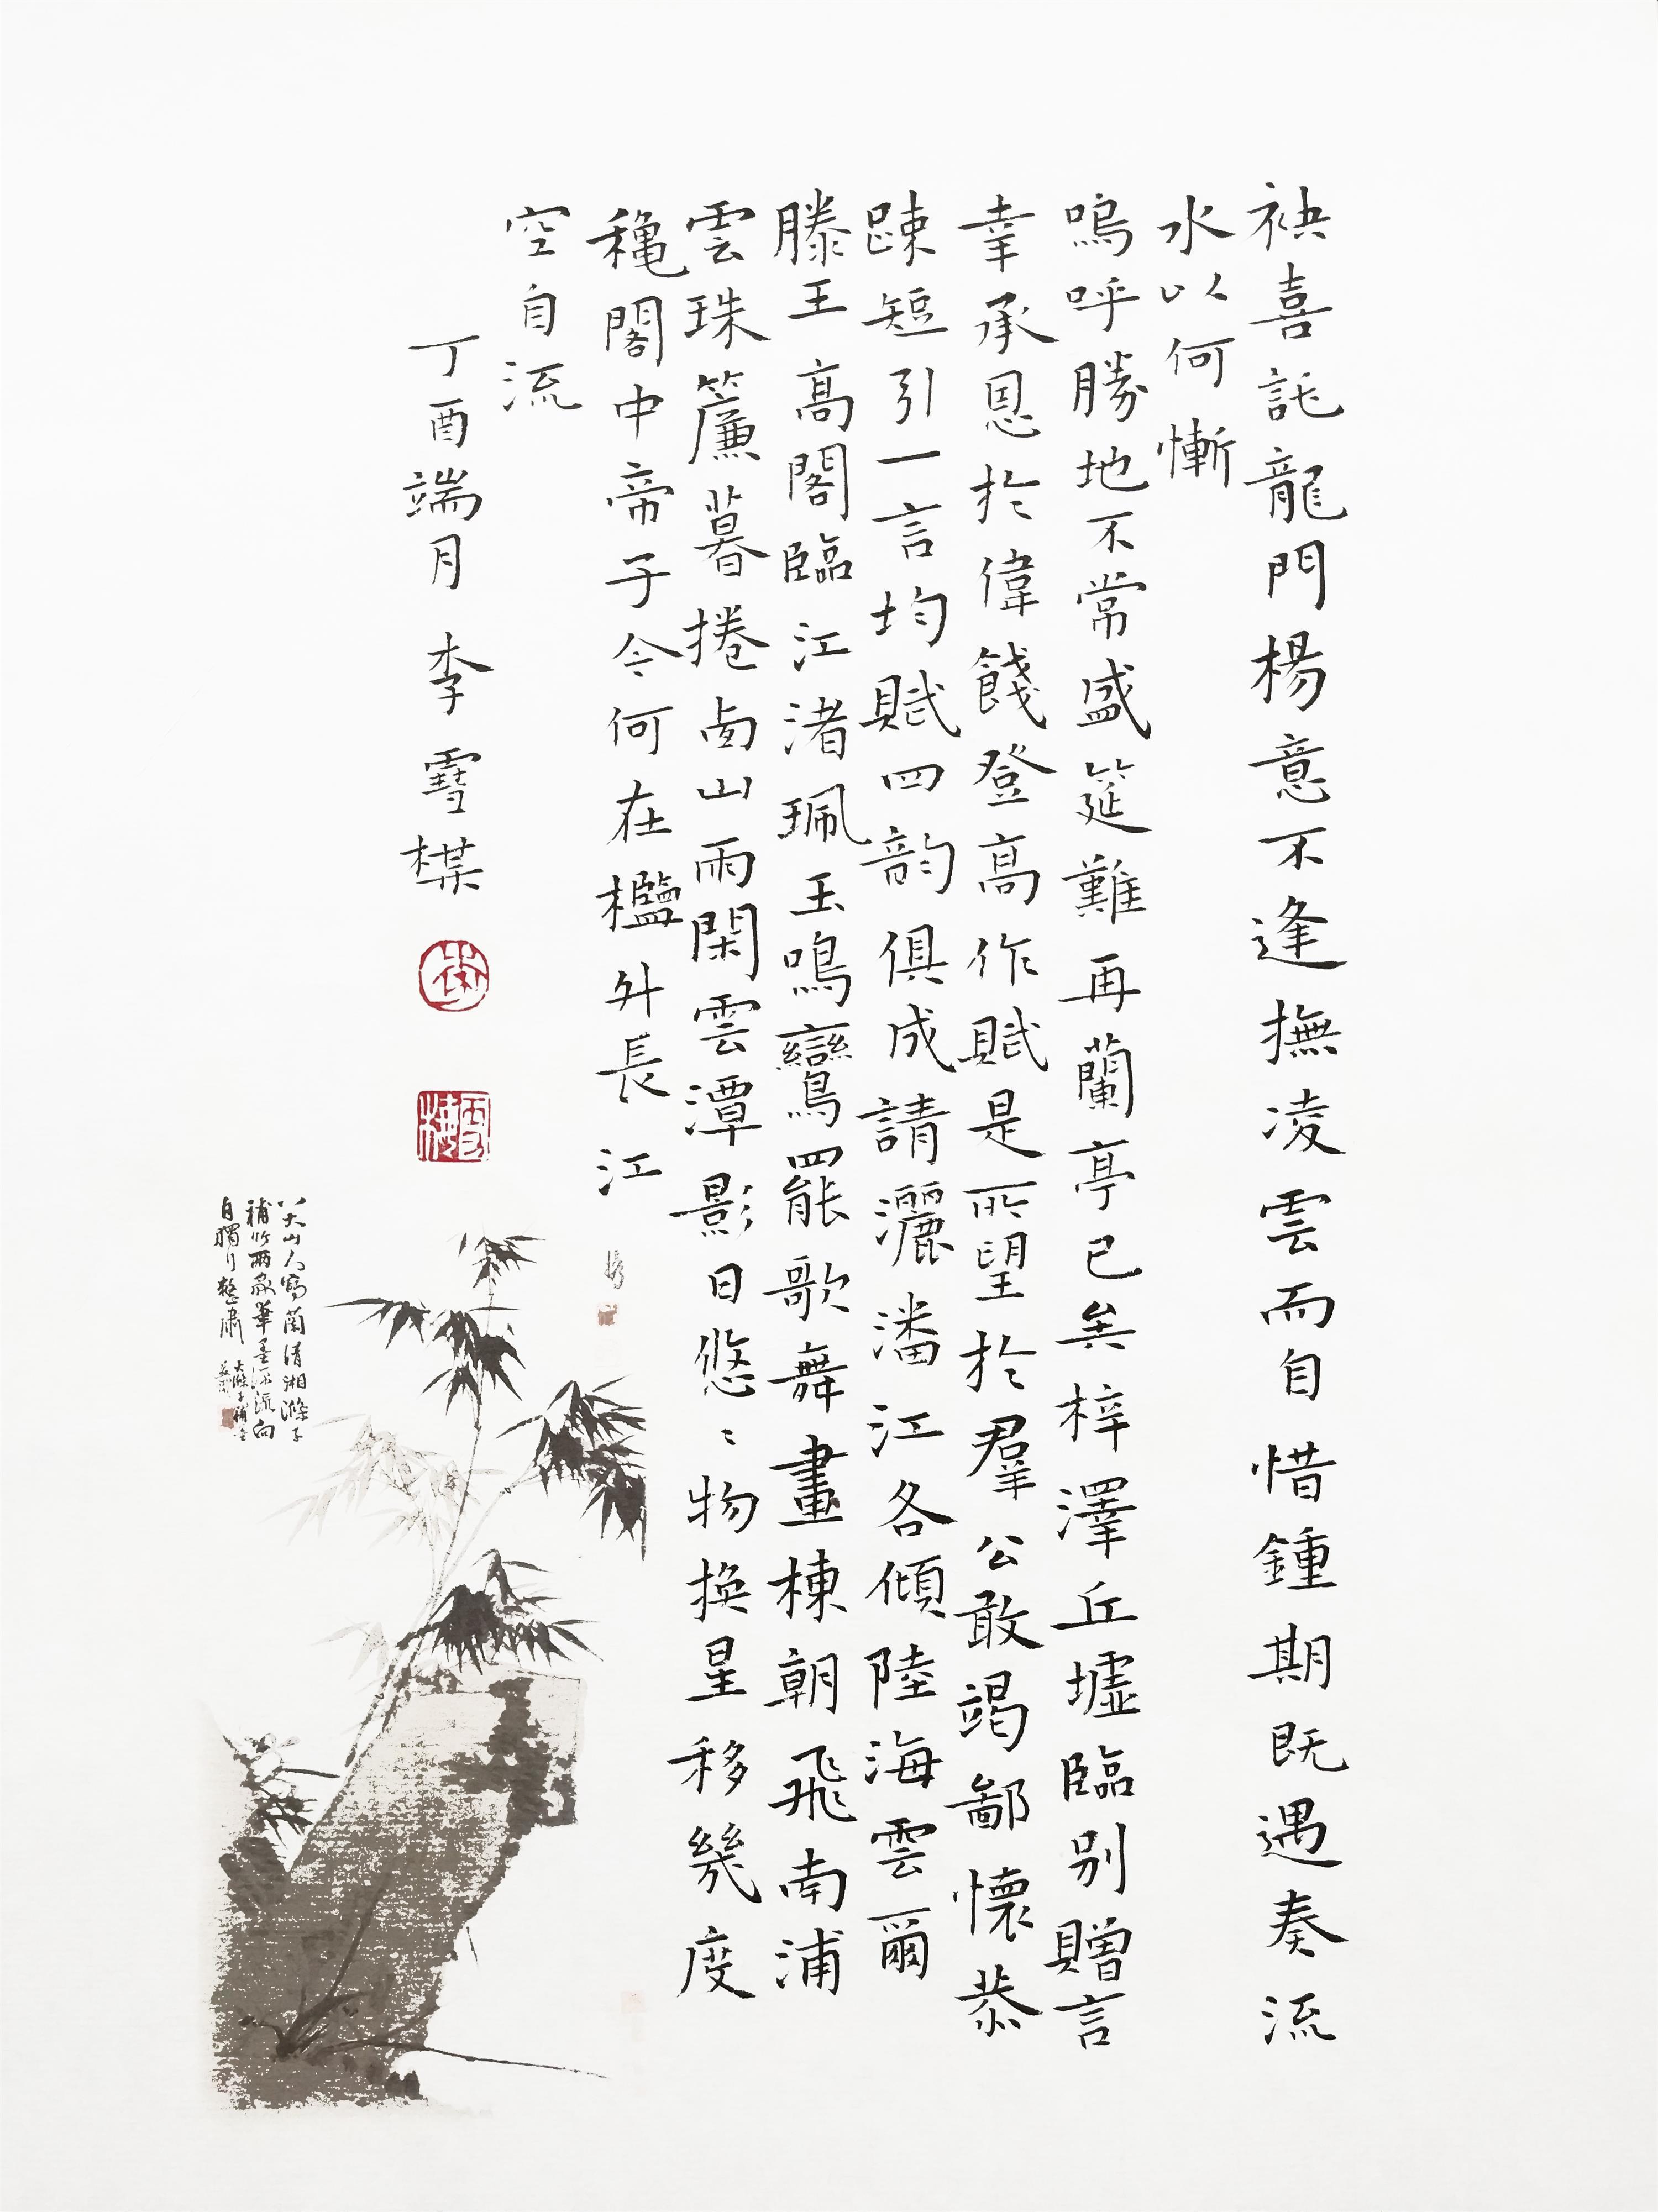 袂喜託龍門楊意不逢撫凌雲而自惜鍾期既遇奏流
水以何慚
嗚呼勝地不常盛筵難再蘭亭已矣梓澤丘墟臨別贈言
幸承恩於偉餞登高作賦是所望於羣公敢竭鄙懷恭
疎短引一言均賦四韵俱成請灑潘江各傾陸海雲爾
滕王高閣臨江渚珮玉鳴鸞罷歌舞畫棟朝飛南浦
雲珠簾暮捲西山雨閑雲潭影日悠〻物換星移幾度
穐閣中帝子今何在檻外長江
空自流
丁酉端月 李雪楳
李
雪梅
八大山人寫蘭清湘滌子
補竹兩家筆墨源流向
自獨行整肅
大滌子補竹